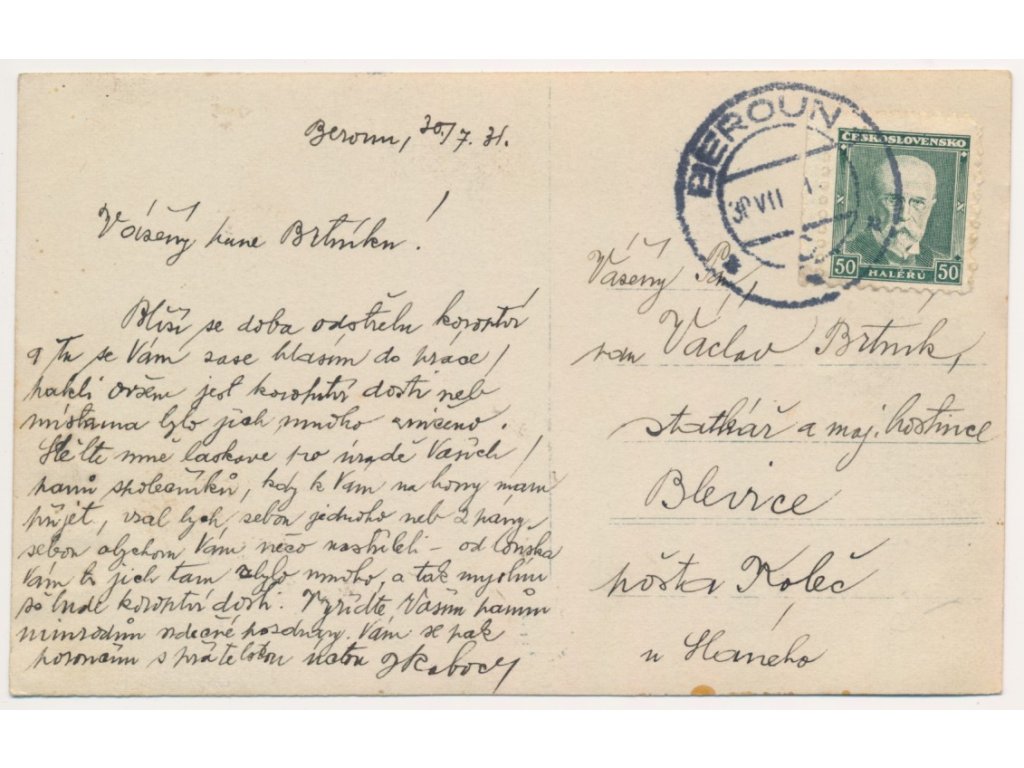 Beroun, 30/7.31.
Vážený pane Brtníku!
Blíží se doba odstřelu koroptví
a tu se Vám zase hlásím do práce,
nakli ovšem jest koroptví dosti neb
místama bylo jich mnoho zničeno.
Sdělte mně laskavě po úradě Vašich
panů společníků, kdy k Vám na hony mám
přijet, vzal bych sebou jednoho neb 2 pány
sebou abychom Vám něco nastříleli – od loňska
Vám tu jich tam zbylo mnoho, a tak myslím
že bude koroptví dosti. Vyřiďte Vašim panům
nimrodům srdečné pozdravy. Vám se pak
poroučím s přátelskou úctou
BEROUN
30 VII
ČESKOSLOVENSKO
50 HALÉŘŮ 50
Vážený Pán
pan Václav Brtník,
statkář a maj. hostince
Blevice
pošta Koleč
u Slaného